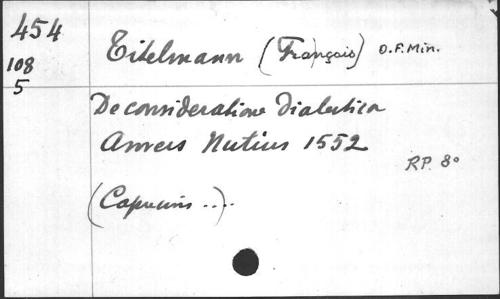 454
108
5
Titelmann (François) O.F.Min.
De consideratione Dialectica
Anvers Nutius 1552
RP. 8°
(Capucins ....)